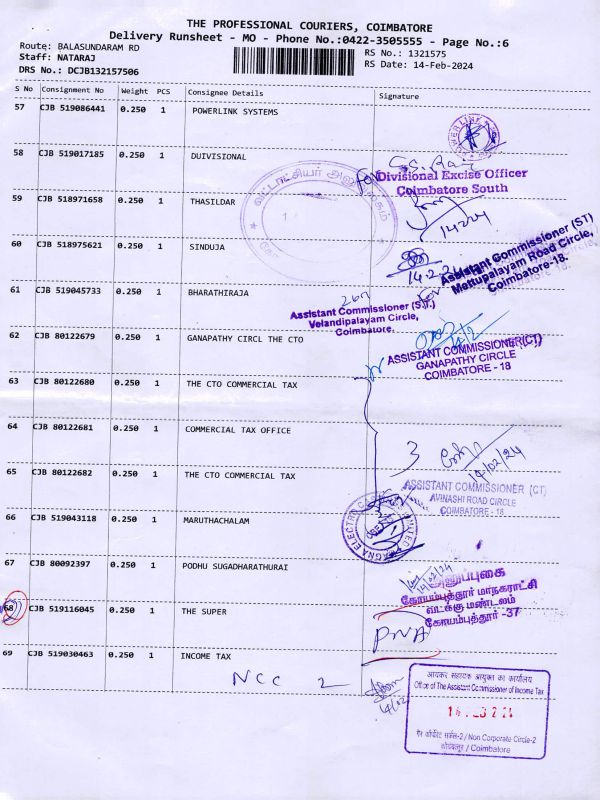 THE PROFESSIONAL COURIERS, COIMBATORE
Delivery Runsheet - MO - Phone No.:0422-3505555 - Page No.:6
Route: BALASUNDARAM RD
Staff: NATARAJ
DRS No.: DCJB132157506
RS No.: 1321575
RS Date: 14-Feb-2024
S No Consignment No Weight PCS Consignee Details Signature
57 CJB 519086441 0.250 1 POWERLINK SYSTEMS
58 CJB 519017185 0.250 1 DUIVISIONAL
Divisional Excise Officer
Coimbatore South
59 CJB 518971658 0.250 1 THASILDAR
14/2/24
60 CJB 518975621 0.250 1 SINDUJA
Assistant Commissioner (ST)
Mettupalayam Road Circle,
Coimbatore-18.
61 CJB 519045733 0.250 1 BHARATHIRAJA
Assistant Commissioner (S.T.)
Velandipalayam Circle,
Coimbatore.
62 CJB 80122679 0.250 1 GANAPATHY CIRCL THE CTO
14/2
ASSISTANT COMMISSIONER(CT)
GANAPATHY CIRCLE
COIMBATORE - 18
63 CJB 80122680 0.250 1 THE CTO COMMERCIAL TAX
64 CJB 80122681 0.250 1 COMMERCIAL TAX OFFICE
3
14/02/24
65 CJB 80122682 0.250 1 THE CTO COMMERCIAL TAX
ASSISTANT COMMISSIONER (CT)
AVINASHI ROAD CIRCLE
COIMBATORE - 18
66 CJB 519043118 0.250 1 MARUTHACHALAM
67 CJB 80092397 0.250 1 PODHU SUGADHARATHURAI
14/02/24
கோயம்புத்தூர் மாநகராட்சி
வடக்கு மண்டலம்
கோயம்புத்தூர் -37
68 CJB 519116045 0.250 1 THE SUPER
PNA
69 CJB 519030463 0.250 1 INCOME TAX
NCC 2
आयकर सहायक आयुक्त का कार्यालय
Office of The Assistant Commissioner of Income Tax
गैर कॉर्पोरेट सर्कल-2 / Non Corporate Circle-2
कोयंबत्तूर / Coimbatore